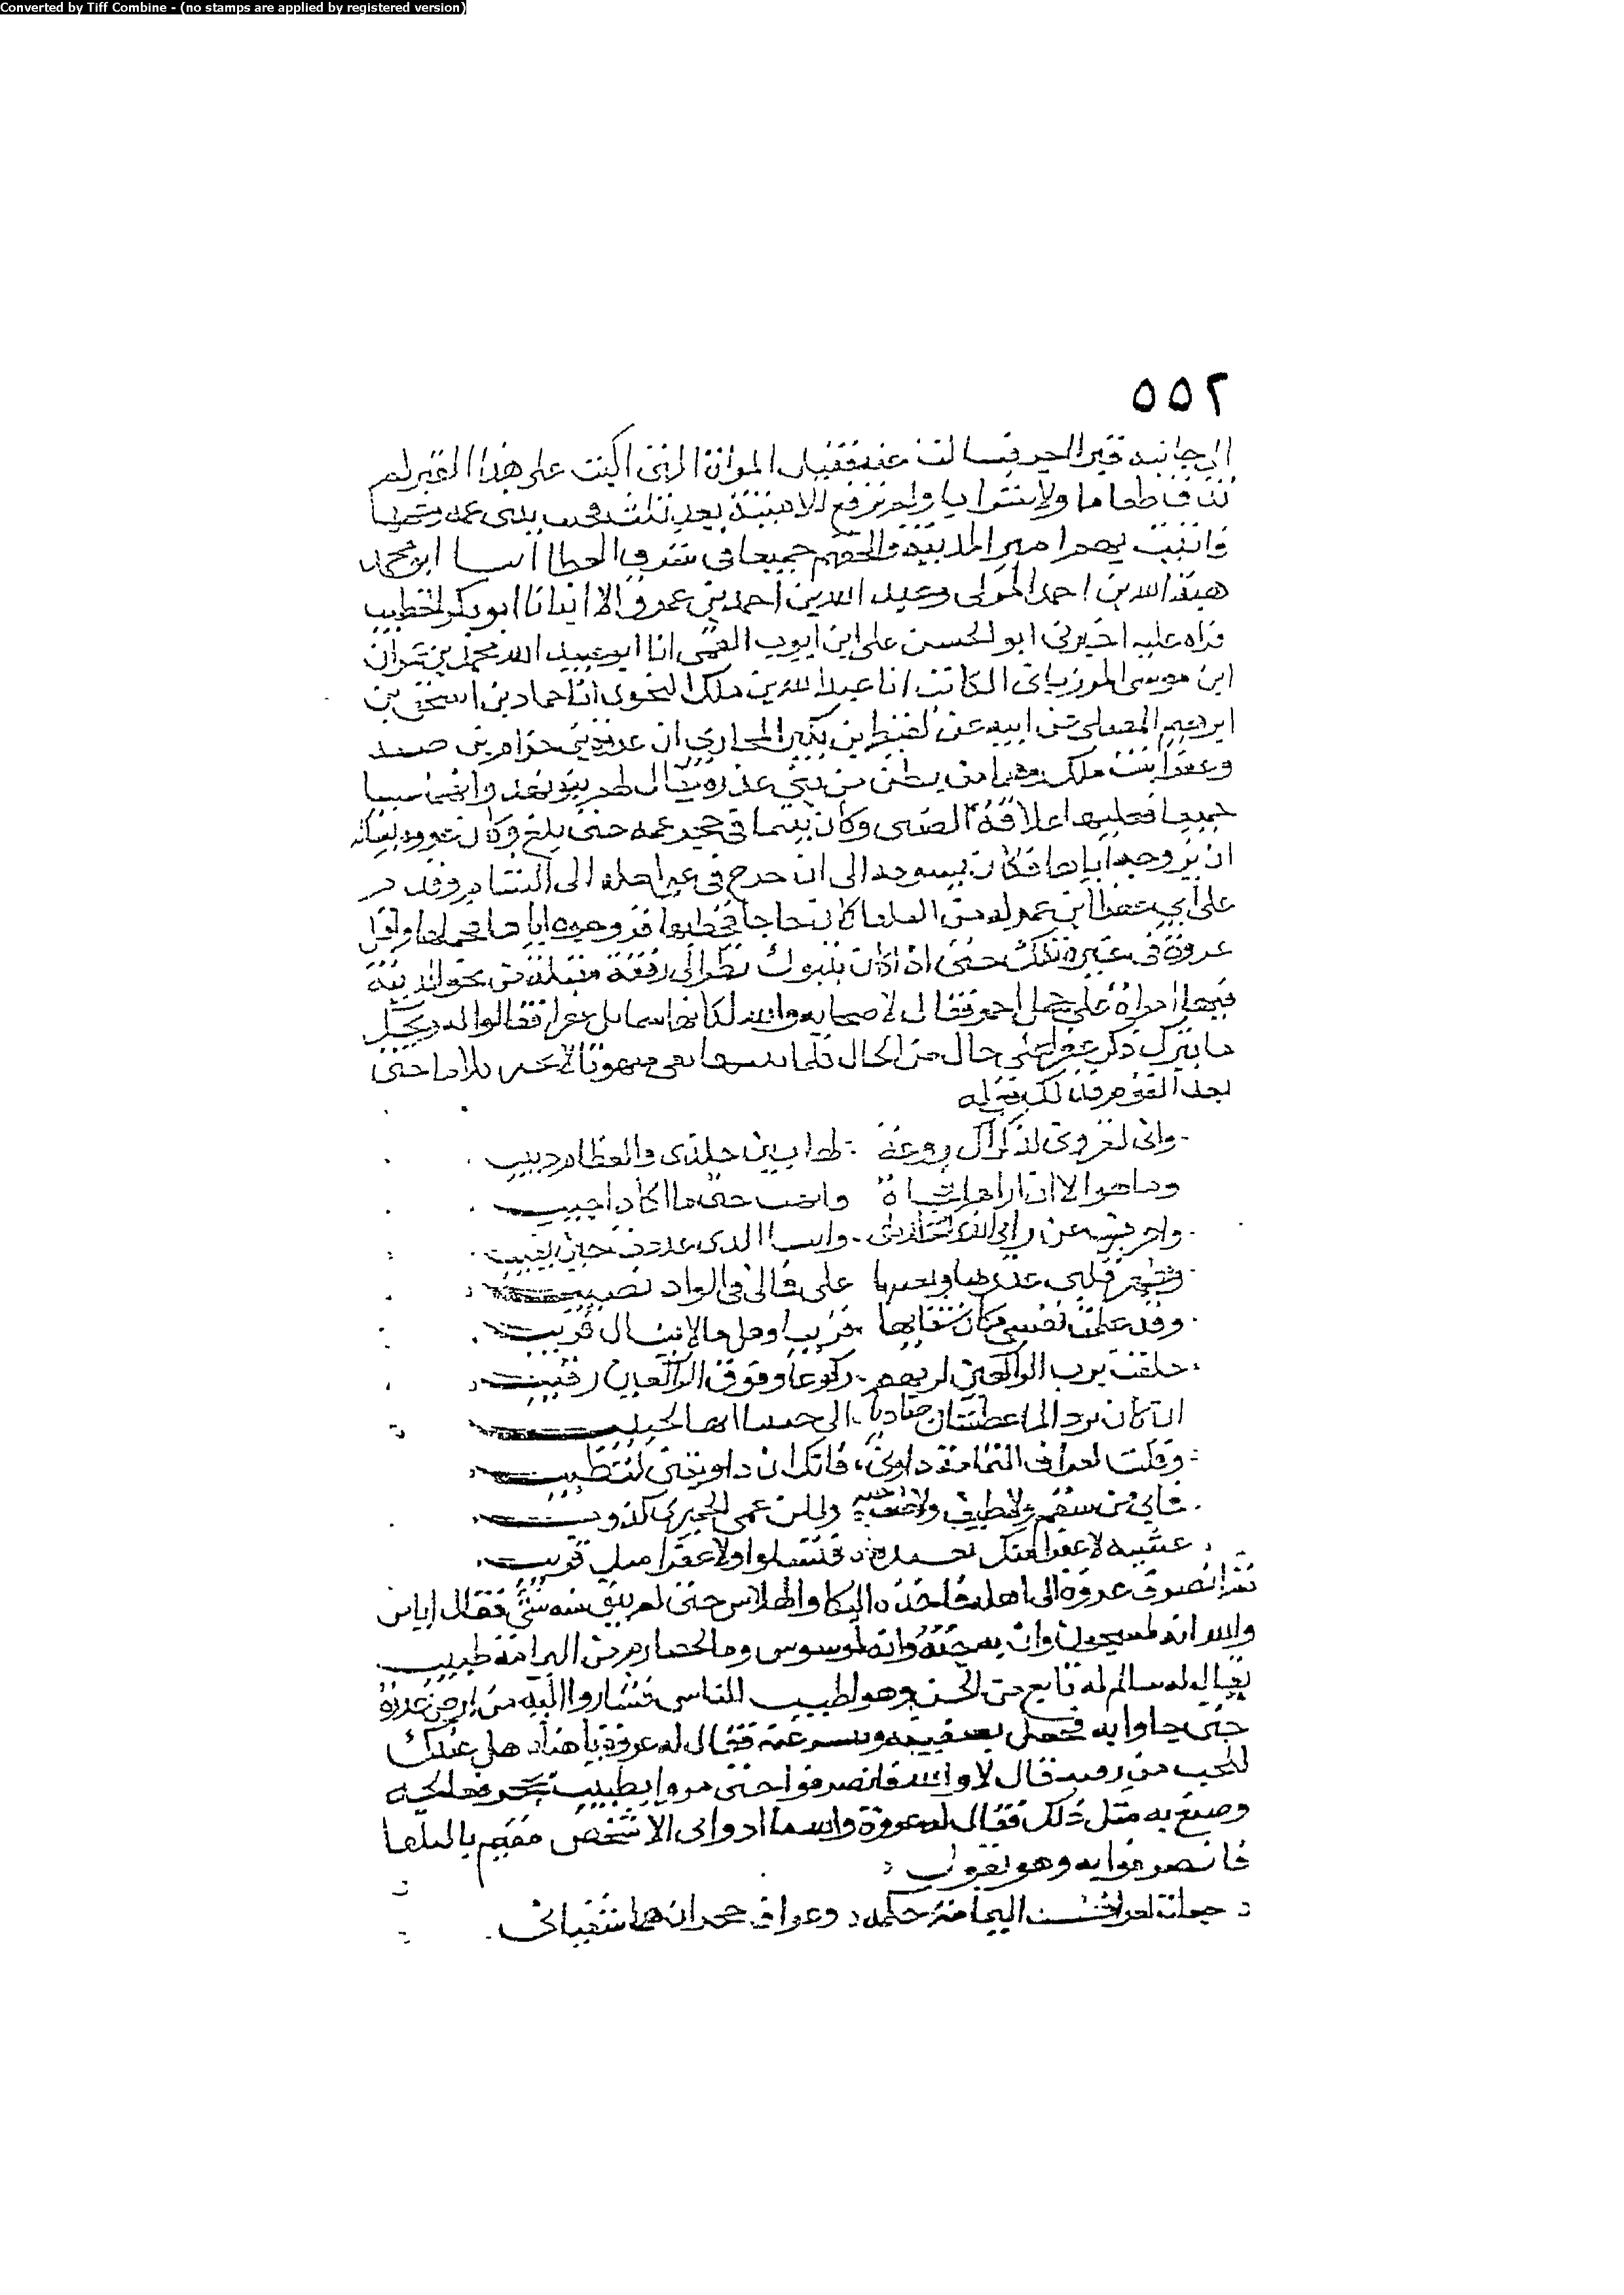 Converted by Tiff Combine - (no stamps are applied by registered version)
٥٥٢
الى جانبه قبر اخر فسالت عنه فقيل المراة التى اكبت على هذا القبر لم
تذق طعاما ولا شرابا ولم ترفع الا ميتة بعد ثلث بنى عمه
المدينة والحقهم جميعا فى شرف العطا ابو محمد
هبة الله بن احمد المزكى وعبد الله بن احمد بن عمر قالا انبانا ابو بكر الخطيب
قراه عليه اخبرنى ابو الحسن على ابن ايوب القمى انا ابو عبيد الله محمد بن عمران
ابن موسى المرزبانى الكاتب انا عبد الله بن ملك النحوى انا حماد بن اسحق بن
ابرهيم الموصلى عن ابيه عن لقيط ابن بكير المحاربى ان عروة بن حزام بن
وعفرا بنت ملك وهما من بطن من بنى عذره يقال لهم بنو نهد وانهما نشبا
جميعا فعلقها علاقة الصبى وكان يتيما فى حجر عمه حتى بلغ وكان عروه يساله
ان يزوجه اياها فكان يسوفه الى ان خرج فى عير اهله الى الشام وقدم
على ابى عفرا ابن عم له من البلقا كان حاجا فخطبها فزوجه اياها فحملها واقبل
عروة فى عيره تلك حتى اذا كان بتبوك نظر الى رفقة مقبلة من نحو المدينة
فيها امراة على جمل احمر فقال لاصحابه والله لكانها شمايل عفرا فقالوا له ويحك
ما تترك ذكر عفرا على حال من الحال فلما بقى مبهوتا لا حتى
بعد القوم فذلك قوله
وانى لتعرونى لذكراك روعة لها بين جلدى والعظام دبيب
وما هو الا ان اراها فجاة فابهت حتى ما اكاد اجيب
واصرف عن رايى الذى وانسا الذى حين تغيب
ويظهر قلبى عذرها ويعينها على فمالى فى الفواد نصيب
وقد علمت نفسى مكان شفايها قريبا وهل ما لا ينال قريب
حلفت برب الراكعين لربهم ركوعا وفوق الراكعين رقيب
لئن كان برد الما عطشان صاديا الى حبيبا انها لحبيب
وقلت لعراف اليمامة داونى فانك ان داويتنى لطبيب
فما بى من سقم ولا طيف ولا جنة ولكن عمى الحميرى كذوب
عشية لا عفرا منك فتسلوا ولا عفرا منك قريب
ثم انصرف عروة الى اهله فاخذه البكا والهلاس حتى لم يبق منه شى فقال اناس
والله انه لمسحور وان به جنة وانه لموسوس وما لحضارم من اليمامة طبيب
يقال له سالم له تابع من الجن وهو اطبب الناس فساروا اليه من ارض عذرة
حتى جاوا به فجعل يسقيه وينشر عنه فقال له عروة يا هناه هل عندك
للحب من رقيه قال لا والله فانصرفوا حتى مروا بطبيب بحجر فعالجه
وصنع به مثل ذلك فقال له عروة والله ما دوايى الا شخص مقيم بالبلقا
فانصرفوا به وهو يقول
جعلت لعراف اليمامة حكمه وعراف حجر ان هما شفيانى